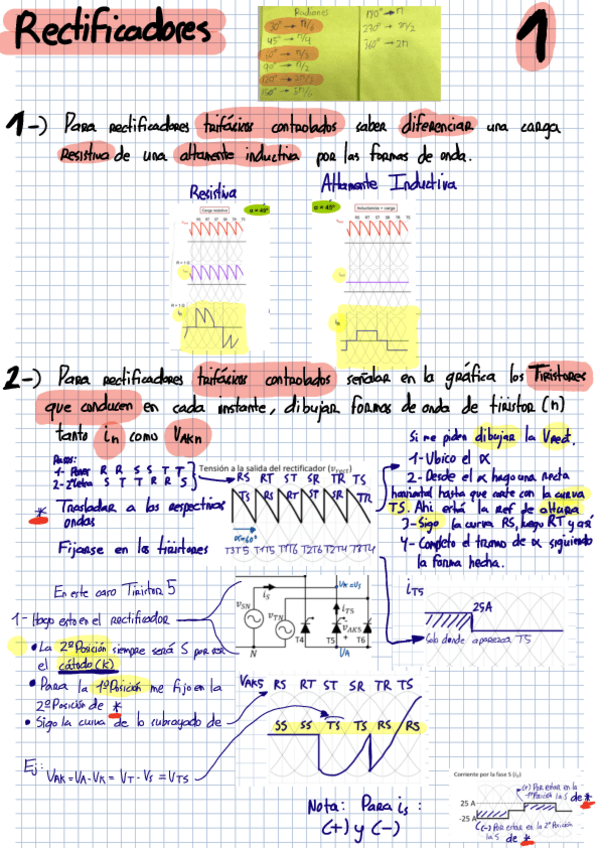 Rectificadores
1
Radianes
30° → π/6
45° → π/4
60° → π/3
90° → π/2
120° → 2π/3
150° → 5π/6
180° → π
270° → 3π/2
360° → 2π
1-) Para rectificadores trifásicos controlados saber diferenciar una carga
Resistiva de una altamente inductiva por las formas de onda.
Resistiva
Altamente Inductiva
Carga resistiva
α = 45°
α = 45°
2-) Para rectificadores trifásicos controlados señalar en la gráfica los Tiristores
que conducen en cada instante, dibujar formas de onda de tiristor (n)
tanto in como VAKn
Pasos:
1- Poner R R S S T T
2- 2ª letra S T T R R S
* Trasladar a las respectivas
ondas
Fijarse en los tiristores
Tensión a la salida del rectificador (vrect)
RS RT ST SR TR TS
TS RS RT ST SR TR
α=60°
T3T5 T1T5 T1T6 T2T6 T2T4 T3T4
Si me piden dibujar la Vrect.
1- Ubico el α
2- Desde el α hago una recta
horizontal hasta que corte con la curva
TS. Ahí está la ref de altura
3- Sigo la curva RS, luego RT y así
4- Completo el tramo de α siguiendo
la forma hecha.
En este caso Tiristor 5
1- Hago esto en el rectificador
• La 2ª Posición siempre será S por ser
el cátodo (K)
• Para la 1ª Posición me fijo en la
2ª Posición de *
• Sigo la curva de lo subrayado de
Ej: VAK = VA - VK = VT - VS = VTS
iS
VK=VS
vSN
vTN
iTS
vAK5
N
T4
T5
T6
VA
iT5
25A
Solo donde aparezca T5
VAK5 RS RT ST SR TR TS
SS SS TS TS RS RS
Nota: Para is :
(+) y (-)
Corriente por la fase S (is)
(+) Por estar en la
1ª Posición la S de *
25 A
-25 A
(-) Por estar en la 2ª Posición
la S de *